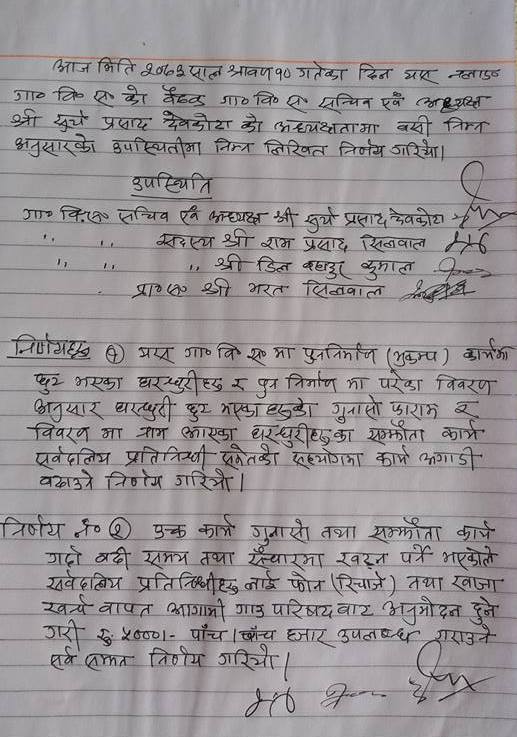 आज मिति २०७३ साल श्रावण १० गतेका दिन यस
गा० वि० स० को बैठक गा० वि० स० सचिव एवं अध्यक्ष
श्री सुर्य प्रसाद देवकोटा को अध्यक्षतामा बसी निम्न
अनुसारको उपस्थितीमा निम्न लिखित निर्णय गरियो।
उपस्थिति
गा० वि०स० सचिव एवं अध्यक्ष श्री सुर्य प्रसाद देवकोटा
,, ,, सदस्य श्री राम प्रसाद सिलवाल
,, ,, ,, श्री डिल बहादुर कुमाल
प्रा० स० श्री भरत सिलवाल
निर्णयहरु (१) यस गा० वि० स० मा पुननिर्माण (भुकम्प) कार्यमा
छुट भएका घरधुरीहरु र पुन निर्माण मा परेका विवरण
अनुसार घरधुरी छुट भएका हरुको गुनासो फाराम र
विवरण मा नाम आएका घरधुरीहरु का सम्झौता कार्य
सर्वदलिय प्रतिनिधी समेतको सहयोगमा कार्य अगाडी
बढाउने निर्णय गरियो।
निर्णय नं० (२) उक्त कार्य गुनासो तथा सम्झौता कार्य
गर्दा बढी समय तथा संचारमा खटन पर्ने भएकोले
सर्वदलिय प्रतिनिधीहरु लाई फोन (रिचार्ज) तथा खाजा
खर्च वापत आगामी गाउ परिषद बाट अनुमोदन हुने
गरी रु. ५०००।- पाँच । पाँच हजार उपलब्ध गराउने
सर्व सम्मत निर्णय गरियो।